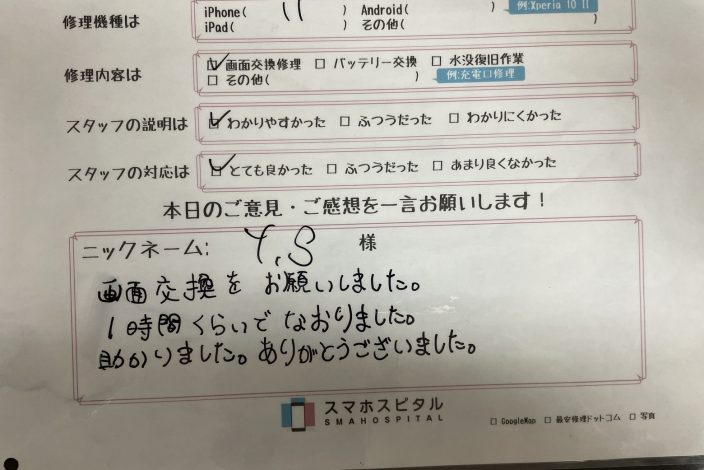 修理機種は
iPhone( 11 ) Android( ) 例:Xperia 10 II
iPad( ) その他( )
修理内容は
☑ 画面交換修理 □ バッテリー交換 □ 水没復旧作業
□ その他( ) 例:充電口修理
スタッフの説明は ☑ わかりやすかった □ ふつうだった □ わかりにくかった
スタッフの対応は ☑ とても良かった □ ふつうだった □ あまり良くなかった
本日のご意見・ご感想を一言お願いします!
ニックネーム: Y,S 様
画面交換をお願いしました。
1時間くらいでなおりました。
助かりました。ありがとうございました。
スマホスピタル
SMAHOSPITAL
□ GoogleMap □ 最安修理ドットコム □ 写真